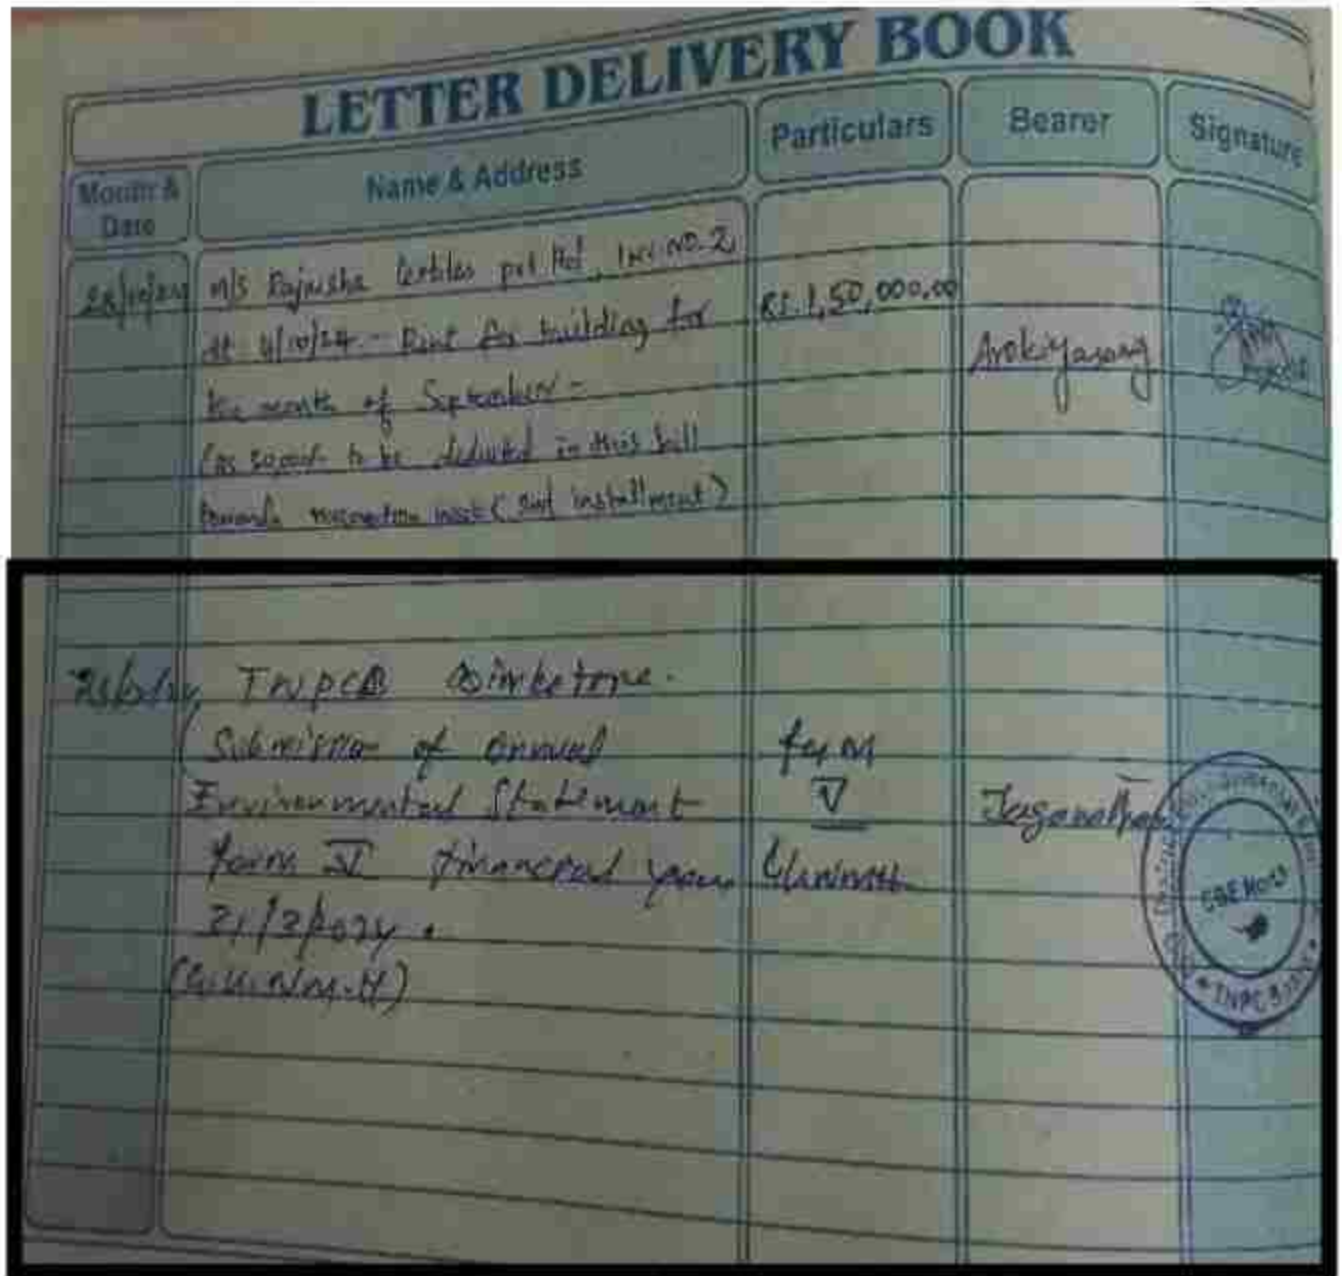 LETTER DELIVERY BOOK
Month & Date
Name & Address
Particulars
Bearer
Signature
M/S Rajusha textiles pvt ltd, Inv NO. 2,
dt 4/10/24 - Rent for building for
the month of September -
to be deducted in this bill
towards (2nd installment)
Rs. 1,50,000.00
Arokiyasamy
TNPCB Coimbatore.
(Submission of Annual
Environmental Statement
form V financial year
31/3/2024.
(G.K.N.M.H)
form
V
GKNMH
Jaganathan
CBE North
TNPC Board